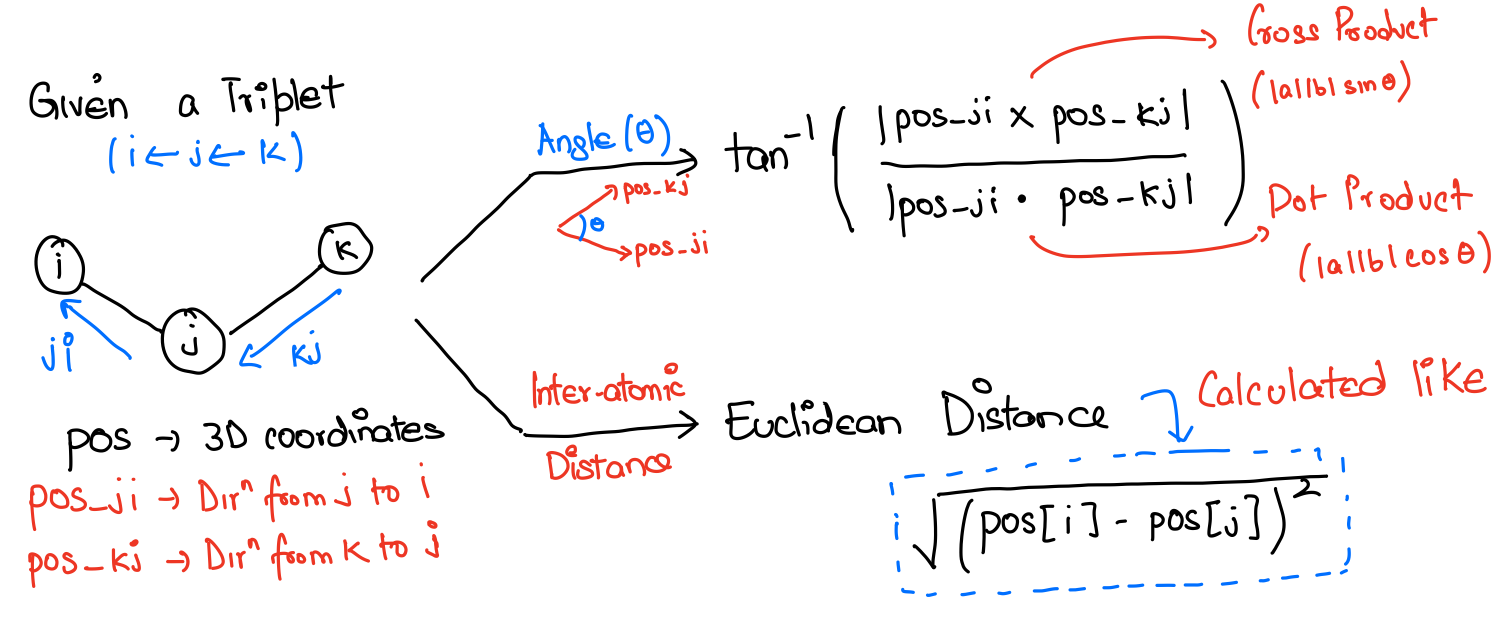 Given a Triplet
(i ← j ← k)
i
j
k
ji
kj
pos → 3D coordinates
pos_ji → Dirⁿ from j to i
pos_kj → Dirⁿ from k to j
Angle (θ)
pos_kj
θ
pos_ji
tan⁻¹ ( |pos_ji × pos_kj|
|pos_ji · pos_kj| )
Cross Product
(|a||b| sin θ)
Dot Product
(|a||b| cos θ)
Inter-atomic
Distance
Euclidean Distance
Calculated like
√(pos[i] - pos[j])²